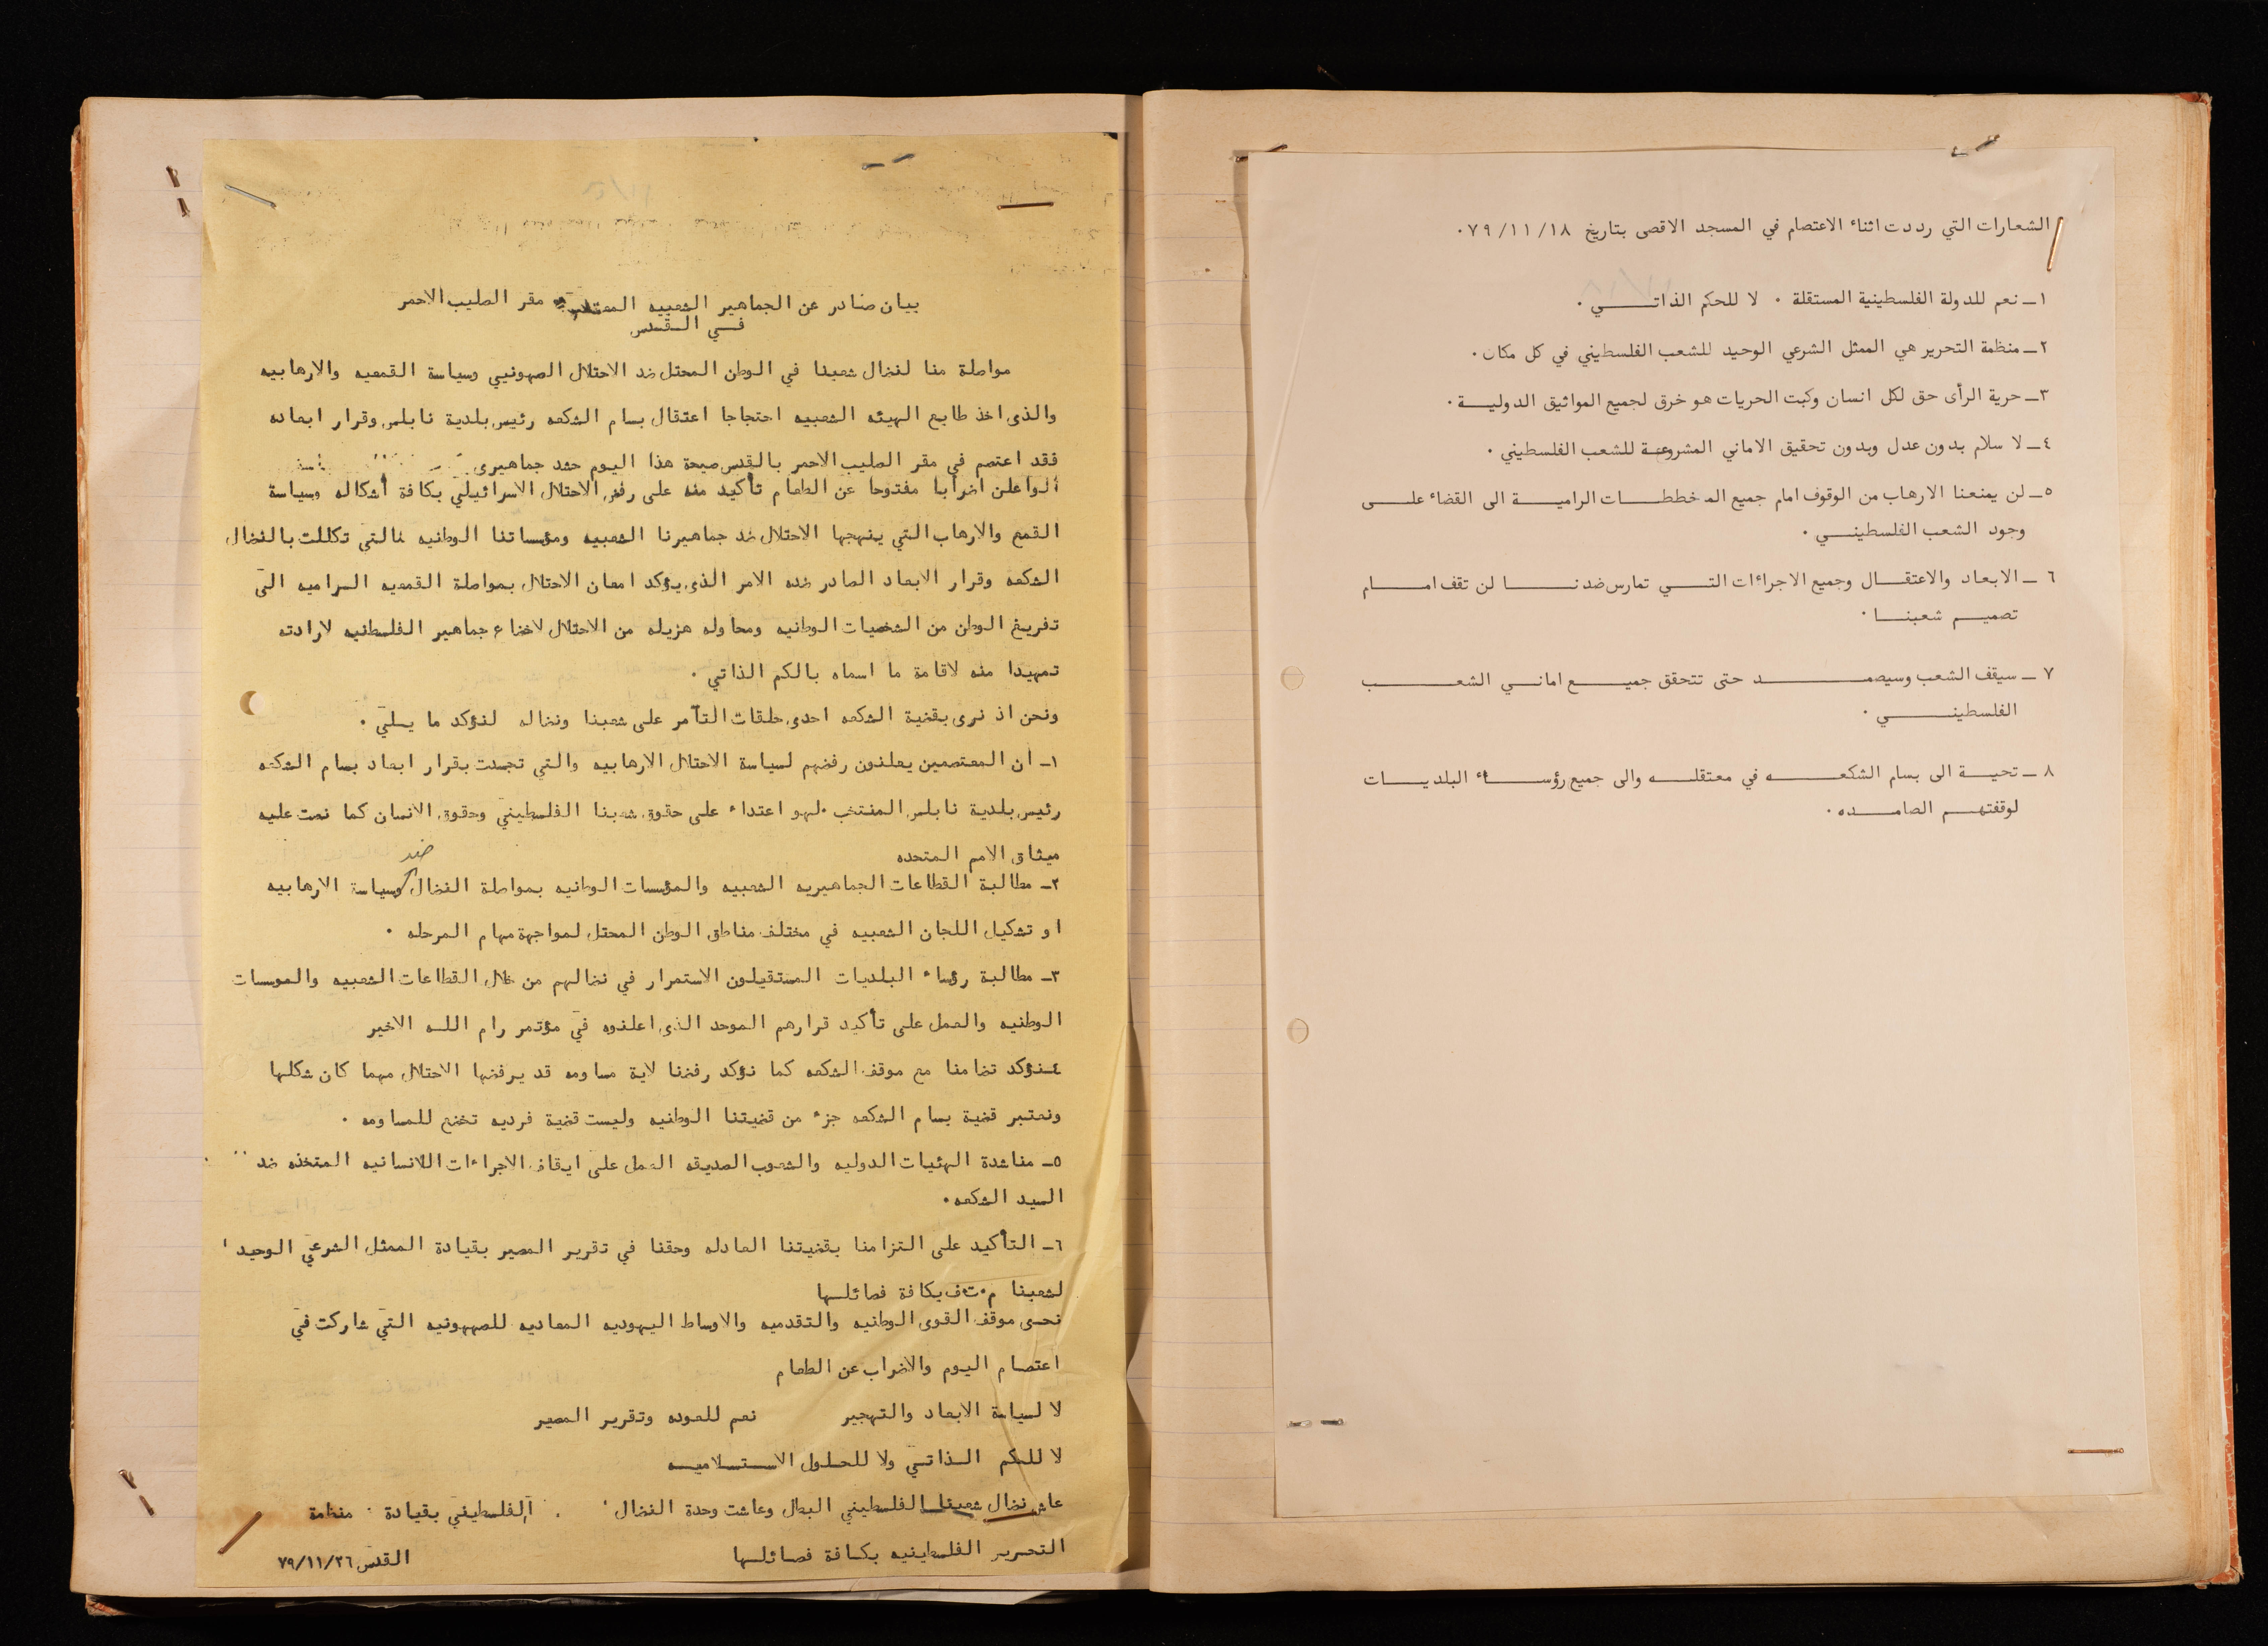 الشعارات التي رددت اثناء الاعتصام في المسجد الاقصى بتاريخ ٧٩/١١/١٨٠
١ـ نعم للدولة الفلسطينية المستقلة ٠ لا للحكم الذاتــــي ٠
٢ـ منظمة التحرير هي الممثل الشرعي الوحيد للشعب الفلسطيني في كل مكان٠
٣ـ حرية الرأى حق لكل انسان وكبت الحريات هو خرق لجميع المواثيق الدوليـــة٠
٤ـ لا سلام بدون عدل وبدون تحقيق الاماني المشروعة للشعب الفلسطيني ٠
٥ـ لن يمنعنا الارهاب من الوقوف امام جميع المخططـــات الراميـــة الى القضاء علـــى
وجود الشعب الفلسطينـــي ٠
٦ ـ الابعاد والاعتقـــال وجميع الاجراءات التـــي تمارس ضدنـــا لن تقف امـــام
تصميـــم شعبنـــا ٠
٧ ـ سيقف الشعب وسيصمـــد حتى تتحقق جميـــع امانـــي الشعـــب
الفلسطينـــي ٠
٨ ـ تحيـــة الى بسام الشكعـــه في معتقلـــه والى جميع رؤســـاء البلديـــات
لوقفتهـــم الصامـــده٠
بيان صادر عن الجماهير الشعبيه مقر الصليب الاحمر
فـي القدس
مواصلة منا لنضال شعبنا في الوطن المحتل ضد الاحتلال الصهونيي وسياسة القمعيه والارهابيه
والذى اخذ طابع الهيئه الشعبيه احتجاجا اعتقال بسام الشكعه رئيس بلدية نابلس وقرار ابعاده
فقد اعتصم في مقر الصليب الاحمر بالقدس صبحة هذا اليوم حشد جماهيرى
اضرابا مفتوحا عن الطعام تأكيد منه على رفض الاحتلال الاسرائيلي بكافة أشكاله وسياسة
القمع والارهاب التي ينهجها الاحتلال ضد جماهيرنا الشعبيه ومؤسساتنا الوطنيه تكللت بالنضال
الشكعه وقرار الابعاد الصادر ضده الامر الذى يؤكد امعان الاحتلال بمواصلة القمعيه الراميه التى
تفريغ الوطن من الشخصيات الوطنيه ومحاوله هزيله من الاحتلال لاخضاع جماهير الفلسطنيه لارادته
تمهيدا منه لاقامة ما اسماه بالكم الذاتي ٠
ونحن اذ نرى بقضية الشكعه احدى حلقات التآمر على شعبنا ونضاله لنؤكد ما يـلي ٠
١ـ ان المعتصمين يعلنون رفضهم لسياسة الاحتلال الارهابيه والتي تجسدت بقرار ابعاد بسام الشكعه
رئيس بلدية نابلس المنتخب ٠لهو اعتداء على حقوق شعبنا الفلسطيني وحقوق الانسان كما نصت عليه
ميثاق الامم المتحده
٢ـ مطالبة القطاعات الجماهيريه الشعبيه والمؤسسات الوطنيه بمواصلة النضال ضد وسياسة الارهابيه
او تشكيل اللجان الشعبيه في مختلف مناطق الوطن المحتل لمواجهة مهام المرحله ٠
٣ـ مطالبة رؤساء البلديات المستقيلون الاستمرار في نضالهم من خلال القطاعات الشعبيه والموسسات
الوطنيه والعمل على تأكيد قرارهم الموحد الذى اعلنوه في مؤتمر رام اللـه الاخير
٤ـ نؤكد تضامنا مع موقف الشكعه كما نؤكد رفضنا لاية مساومه قد يرفضها الاحتلال مهما كان شكلها
ونعتبر قضية بسام الشكعه جزء من قضيتنا الوطنيه وليست قضية فرديه تخضع للمساومه ٠
٥ـ مناشدة الهئيات الدوليه والشعوب الصديقه العمل على ايقاف الاجراءات اللانسانيه المتخذه ضد
السيد الشكعه٠
٦ـ التأكيد على التزامنا بقضيتنا العادله وحقنا في تقرير المصير بقيادة الممثل الشرعي الوحيد
لشعبنا م٠ت٠ف بكافة فصائلـها
نحـى موقف القوى الوطنيه والتقدميه والاوساط اليهوديه المعاديه للصهيونيه التي شاركت في
اعتصام اليوم والاضراب عن الطعام
لا لسياسة الابعاد والتهجير نعم للعوده وتقرير المصير
لا للحكم الـذاتي ولا للحلـول الاسـتسـلاميـه
عاش نضال شعبنا الفلسطيني البطل وعاشت وحدة النضال الفلسطيني بقيادة منظمة
التحرير الفلسطينيه بكـافة فصـائلـها القدس ٧٩/١١/٢٦